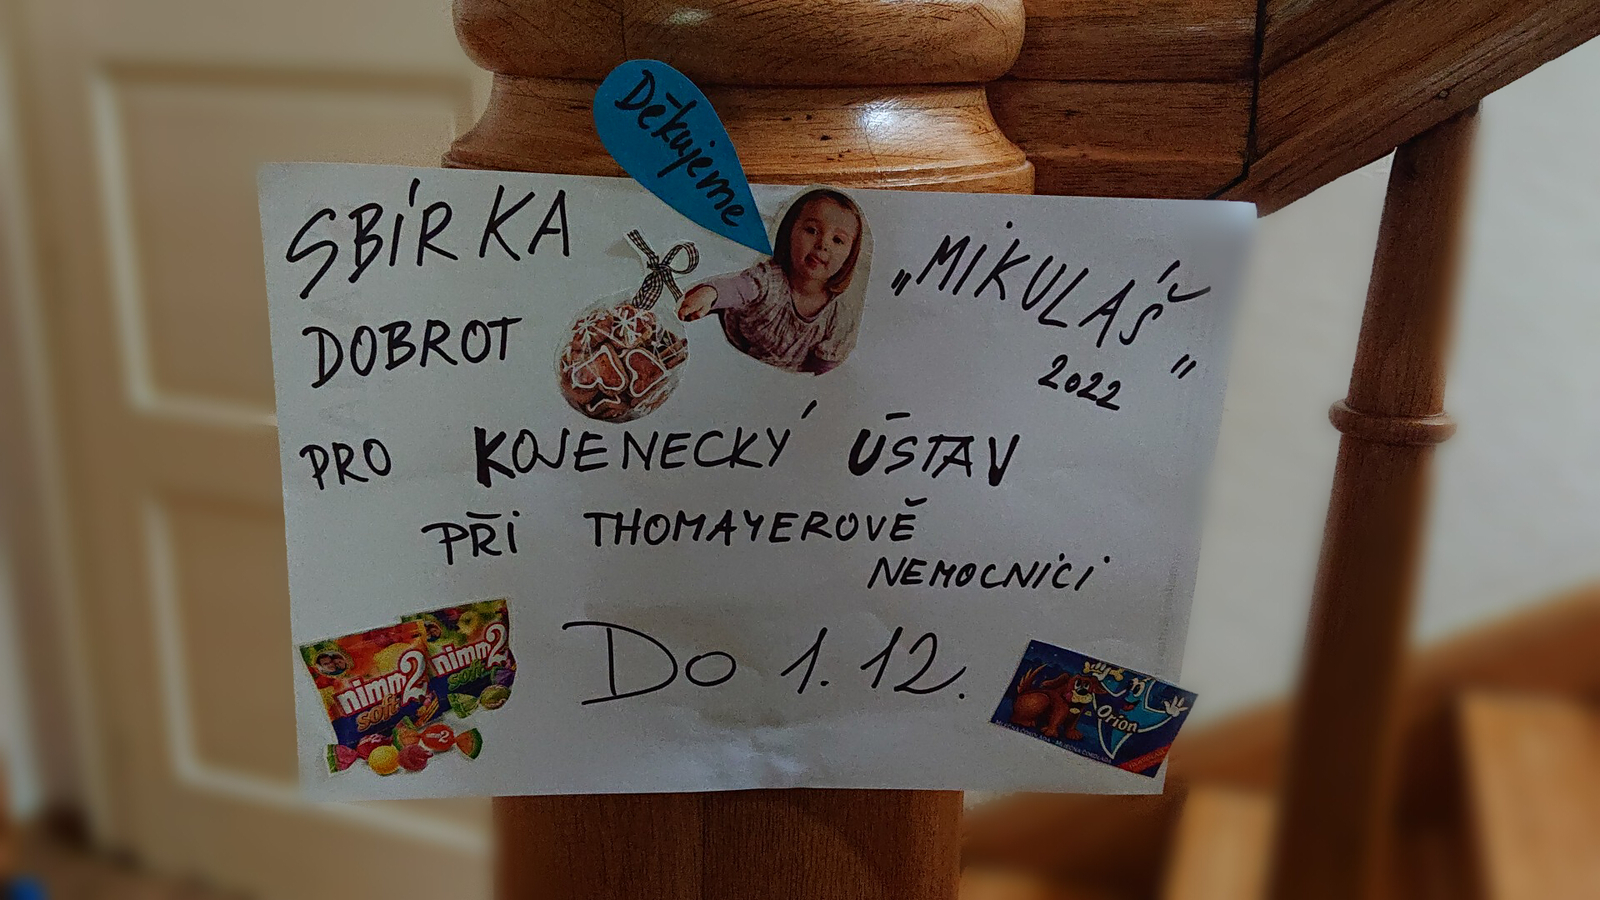 Děkujeme
SBÍRKA
DOBROT
„MIKULÁŠ"
2022
PRO KOJENECKÝ ÚSTAV
PŘI THOMAYEROVĚ
NEMOCNICI
DO 1. 12.
nimm2
soft
nimm2
soft
Orion